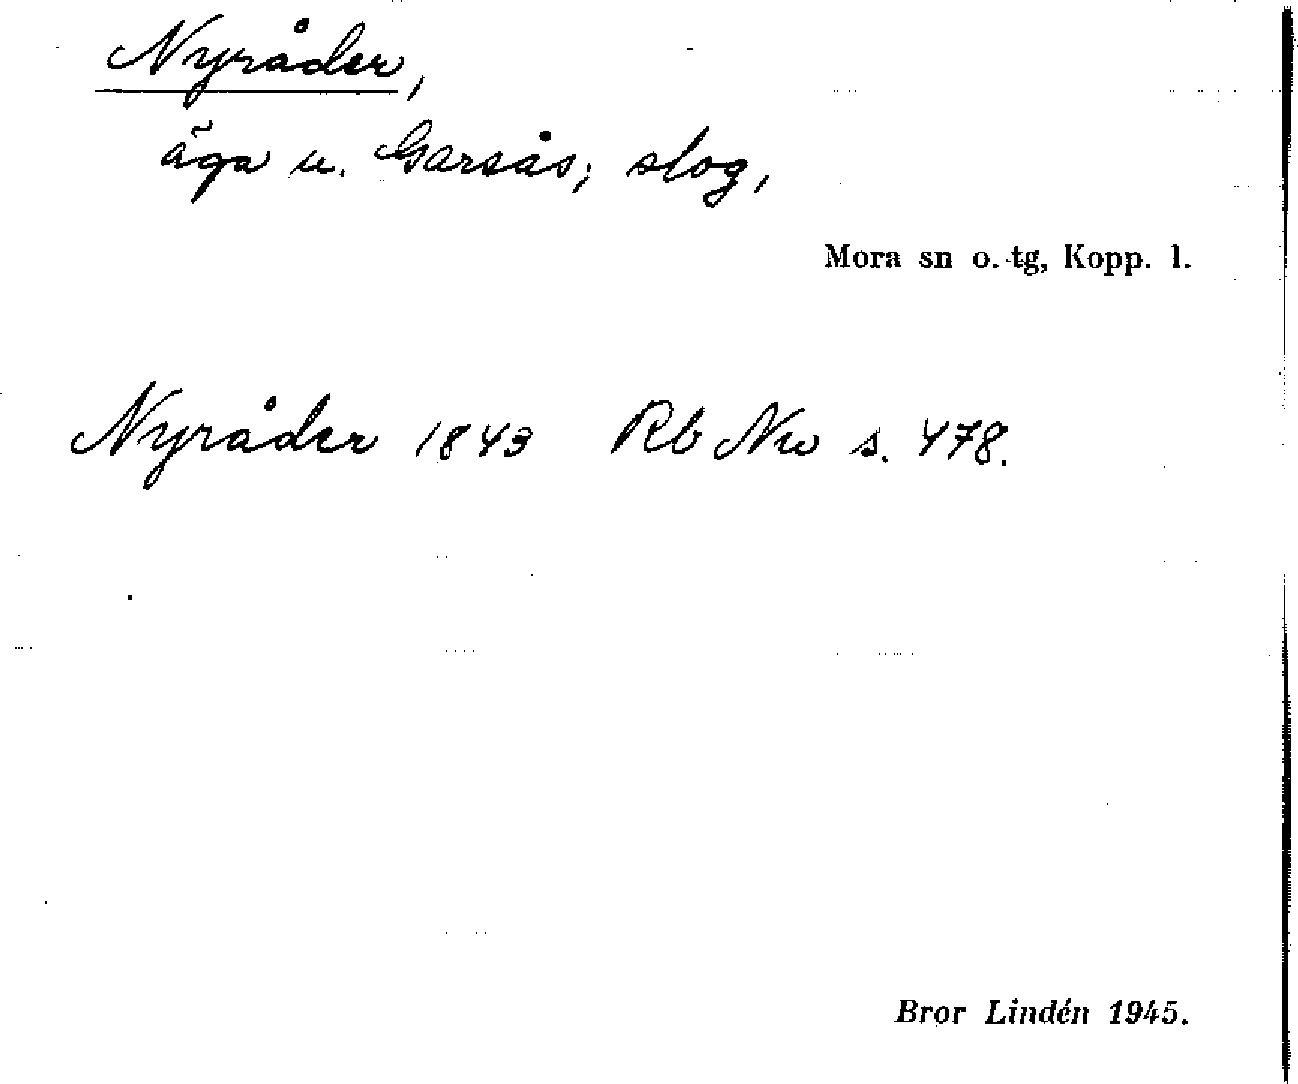 Nyråder,
äga u. Garsås; slog,
Mora sn o. tg, Kopp. l.
Nyråder 1843 Rb Nw s. 478.
Bror Lindén 1945.